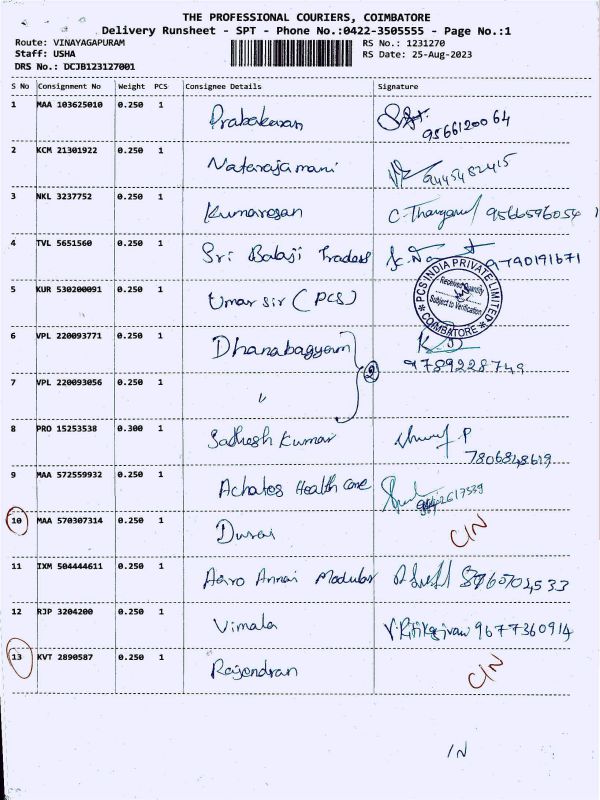 THE PROFESSIONAL COURIERS, COIMBATORE
Delivery Runsheet - SPT - Phone No.:0422-3505555 - Page No.:1
Route: VINAYAGAPURAM RS No.: 1231270
Staff: USHA RS Date: 25-Aug-2023
DRS No.: DCJB123127001
S No Consignment No Weight PCS Consignee Details Signature
1 MAA 103625010 0.250 1 Prabakaran 9566120064
2 KCM 21301922 0.250 1 Natarajamani 9445482415
3 NKL 3237752 0.250 1 Kumaresan 9566596054
4 TVL 5651560 0.250 1 Sri Balaji Traders 9790191671
5 KUR 530200091 0.250 1 Umar sir (PCS)
PCS INDIA PRIVATE LIMITED
Received Quantity
Subject to Verification
COIMBATORE
6 VPL 220093771 0.250 1 Dhanabagyam 9789228749
7 VPL 220093056 0.250 1 " 2
8 PRO 15253538 0.300 1 Sathesh Kumar 7806848619
9 MAA 572559932 0.250 1 Achates Health care
10 MAA 570307314 0.250 1 Durai C/N
11 IXM 504444611 0.250 1 Aero Annai Modular
12 RJP 3204200 0.250 1 Vimala 9677360914
13 KVT 2890587 0.250 1 Rajendran C/N
IN